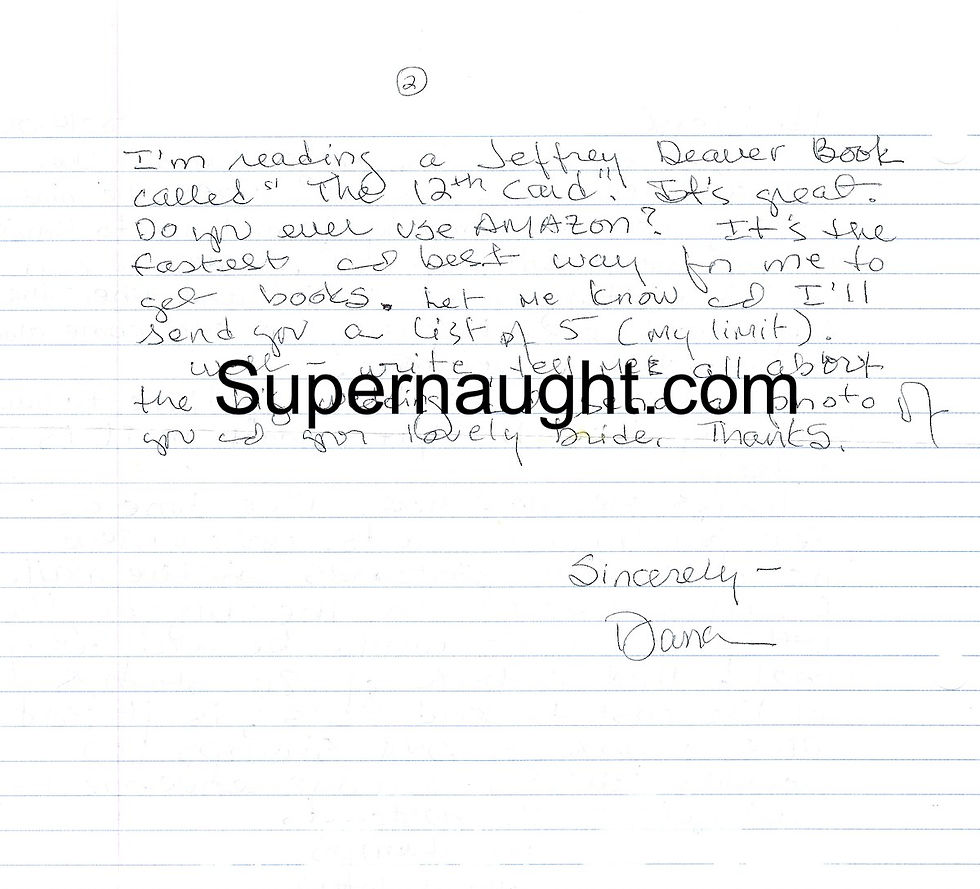 2
I'm reading a Jeffrey Deaver Book
called "The 12th Card". It's great.
Do you ever use AMAZON? It's the
fastest and best way for me to
get books. Let me know and I'll
send you a list of 5 (my limit).
Well - write, tell me all about
Supernaught.com
the big wedding and send a photo of
you and your lovely bride. Thanks.
Sincerely -
Dana